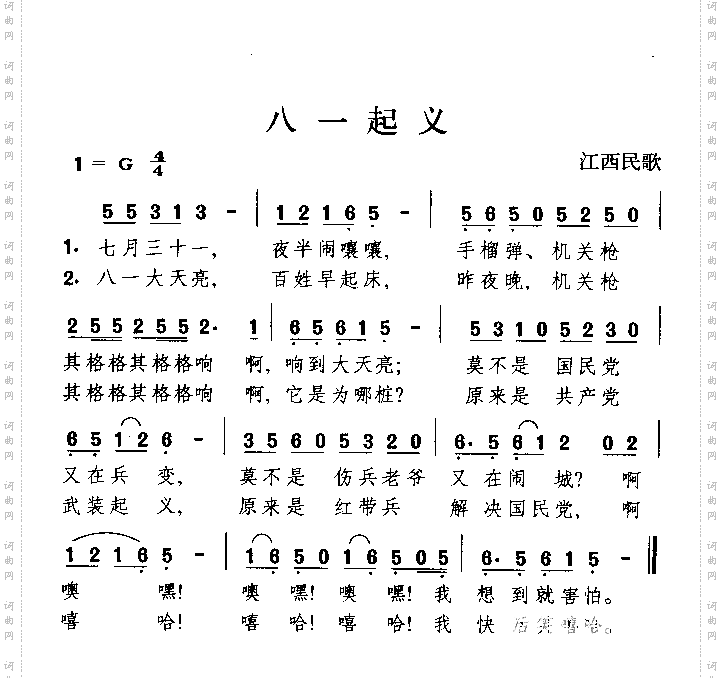 八一起义
1 = G 4/4 江西民歌
5 5 3 1 3 - | 1 2 1 6 5 - | 5 6 5 0 5 2 5 0 |
1. 七月三十一, 夜半闹嚷嚷, 手榴弹、机关枪
2. 八一大天亮, 百姓早起床, 昨夜晚, 机关枪
2 5 5 2 5 5 2· 1 | 6 5 6 1 5 - | 5 3 1 0 5 2 3 0 |
其格格其格格响 啊, 响到大天亮; 莫不是 国民党
其格格其格格响 啊, 它是为哪桩? 原来是 共产党
6 5 1 2 6 - | 3 5 6 0 5 3 2 0 | 6· 5 6 1 2 0 2 |
又在兵 变, 莫不是 伤兵老爷 又在闹 城? 啊
武装起 义, 原来是 红带兵 解决国民党, 啊
1 2 1 6 5 - | 1 6 5 0 1 6 5 0 5 | 6· 5 6 1 5 - ‖
噢 嘿! 噢嘿! 噢嘿! 我 想到就害怕。
嘻 哈! 嘻哈! 嘻哈! 我 快
词曲网